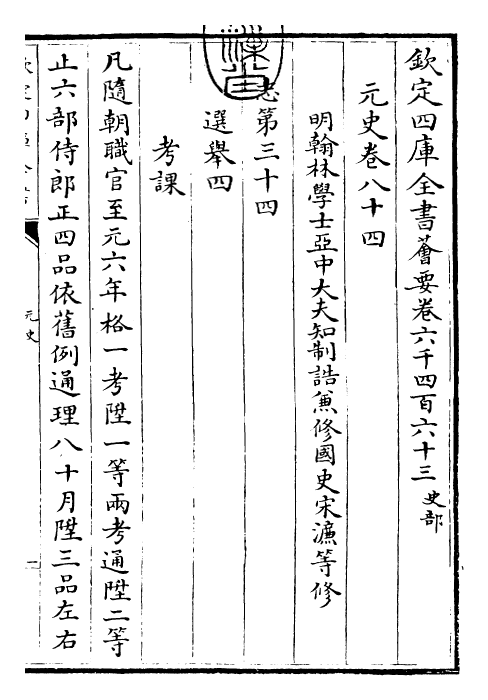 欽定四庫全書薈要卷六千四百六十三 史部
元史卷八十四
明翰林學士亞中大夫知制誥兼修國史宋濂等修
志第三十四
選舉四
考課
凡隨朝職官至元六年格一考陞一等兩考通陞二等
止六部侍郎正四品依舊例通理八十月陞三品左右
元史
一